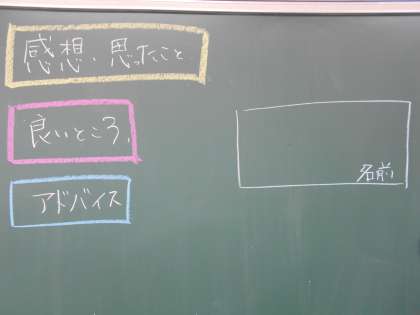 感想、思ったこと
良いところ、
アドバイス
名前